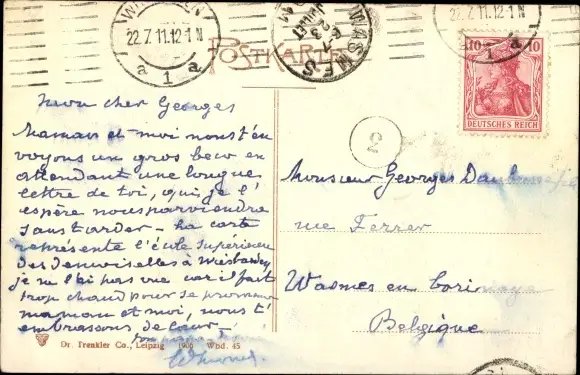 22.7.11.12-1N
a 1 a
POSTKARTE
WASMES
6-7
23
JUILLET
22.7.11.12-1N
1 a
10 10
DEUTSCHES REICH
2
Mon cher Georges
Maman et moi nous t'en
voyons un gros bec en
attendant une longue
lettre de toi, qui je l'
espère nous parviendra
sans tarder - La carte
représente l'école supérieure
des demoiselles à Wiesbaden
je ne l'ai pas vue car il fait
trop chaud pour se promener
maman et moi, nous t'
embrassons de cœur -
Monsieur Georges
rue Ferrer
Wasmes en borinage
Belgique
Dr. Trenkler Co., Leipzig 1906 Wbd. 45